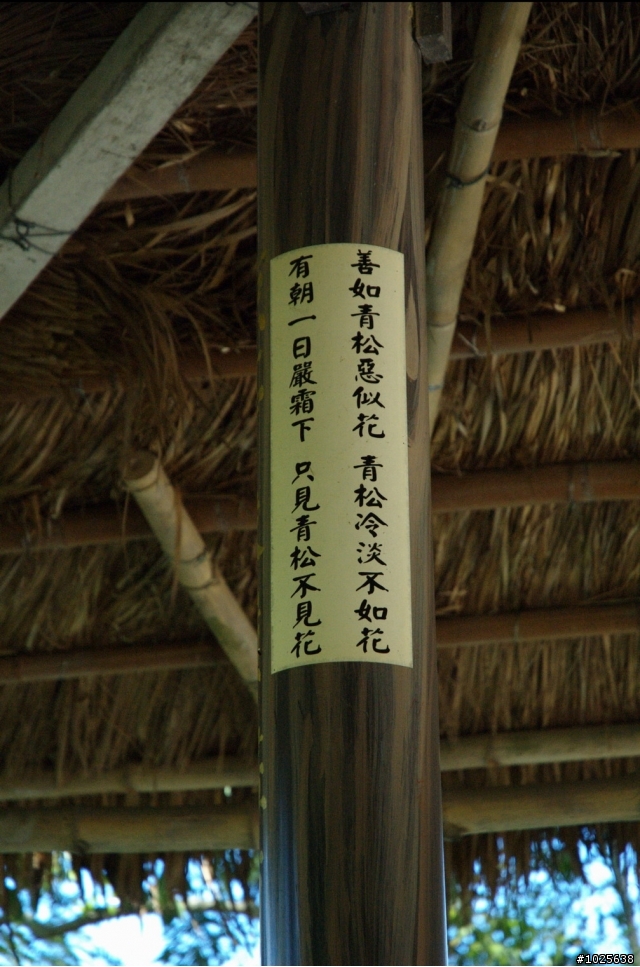 善如青松惡似花 青松冷淡不如花
有朝一日嚴霜下 只見青松不見花
#1025638